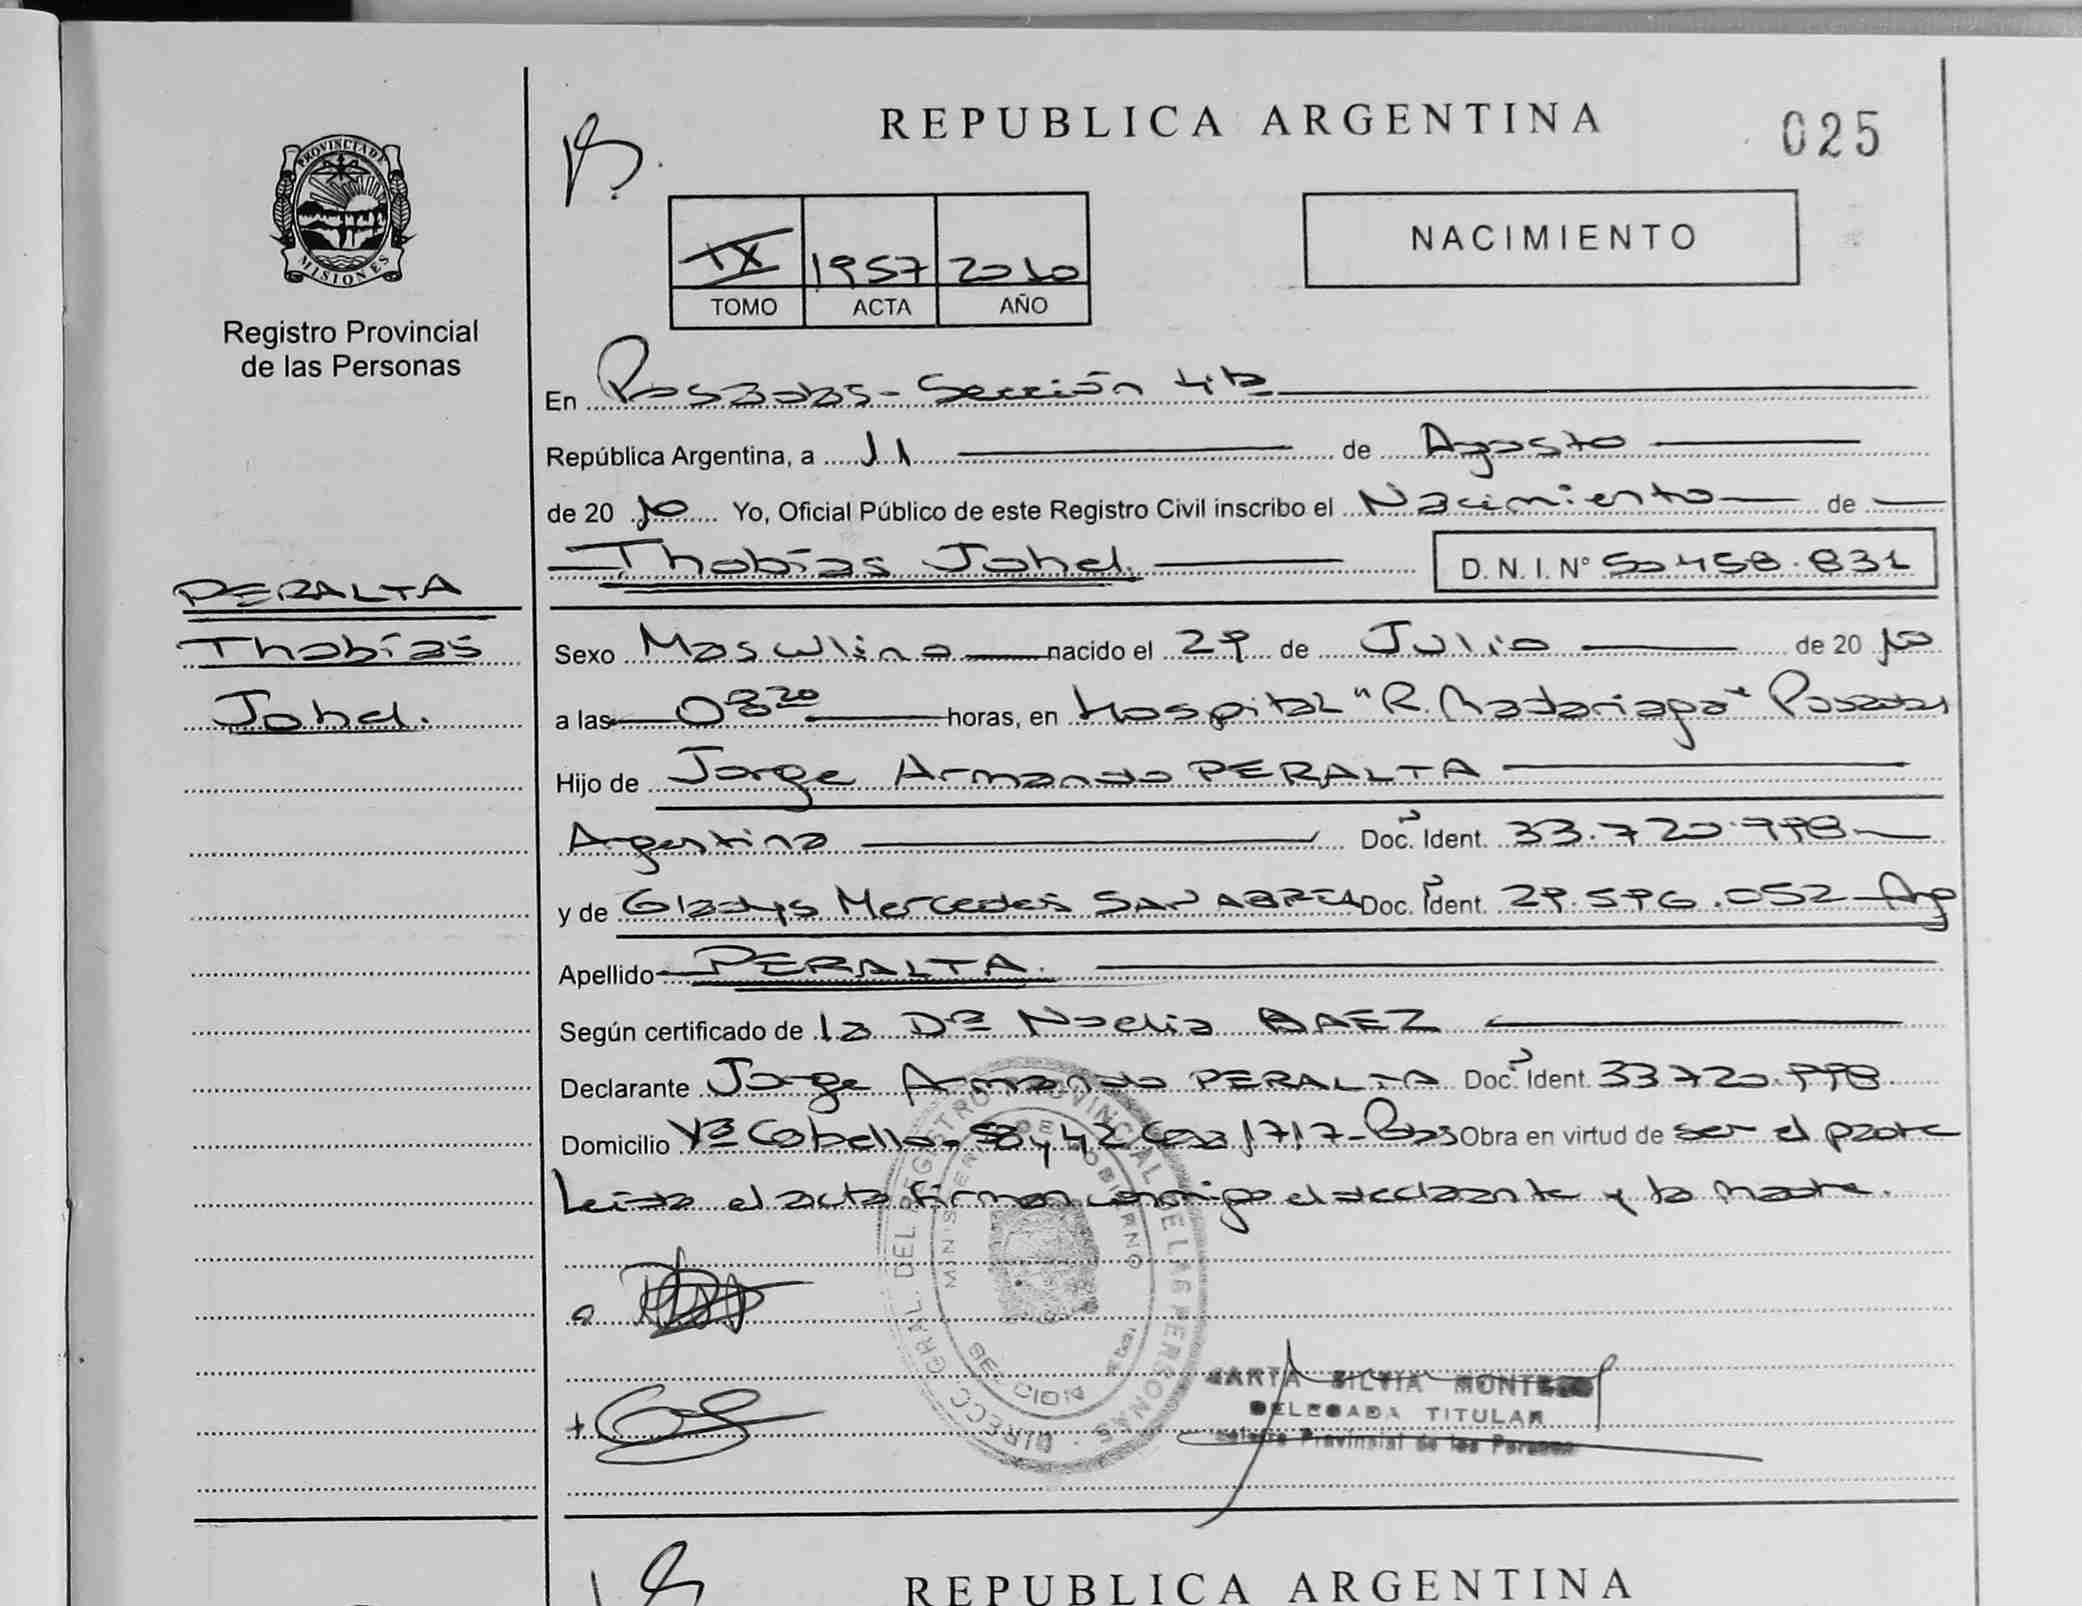 REPUBLICA ARGENTINA
025
PROVINCIA DE
MISIONES
Registro Provincial
de las Personas
IX 1957 2010
TOMO ACTA AÑO
NACIMIENTO
En Posadas - Sección 4ta
República Argentina, a 11 de Agosto
de 2010 Yo, Oficial Público de este Registro Civil inscribo el Nacimiento de
Thobías Johel. D.N.I. Nº 50458.831
PERALTA
Thobías
Johel.
Sexo Masculino nacido el 29 de Julio de 2010
a las 08 20 horas, en Hospital "R. Madariaga" Posadas
Hijo de Jorge Armando PERALTA
Argentina Doc. Ident. 33.720.998
y de Gladys Mercedes SANABRIA Doc. Ident. 29.596.052 - Arg
Apellido PERALTA.
Según certificado de la Dra Noelia BAEZ
Declarante Jorge Armando PERALTA Doc. Ident. 33720.998
Domicilio Vª Cabello, 58 y 42 Casa 1717 - Pdas Obra en virtud de ser el padre
Leída el acta firman conmigo el declarante y la madre.
DIRECC. GRAL. DEL REGISTRO PROVINCIAL DE LAS PERSONAS
MINISTERIO DE GOBIERNO
SECCION
MARTA SILVIA MONTERO
DELEGADA TITULAR
Provincial de las Personas
REPUBLICA ARGENTINA